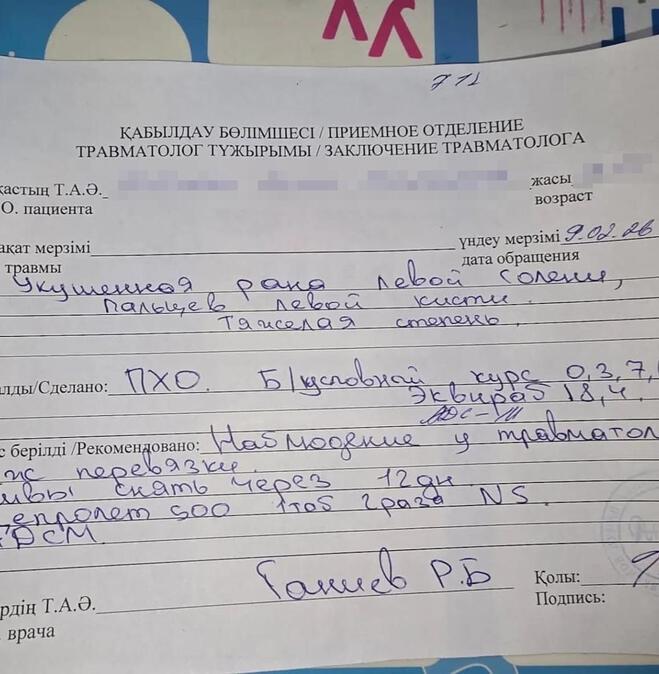 711
ҚАБЫЛДАУ БӨЛІМШЕСІ / ПРИЕМНОЕ ОТДЕЛЕНИЕ
ТРАВМАТОЛОГ ТҰЖЫРЫМЫ / ЗАКЛЮЧЕНИЕ ТРАВМАТОЛОГА
қастың Т.А.Ә. жасы
О. пациента возраст
ақат мерзімі үндеу мерзімі 9.02.26
травмы дата обращения
Укушенная рана левой голени,
пальцев левой кисти.
Тяжелая степень.
алды/Сделано: ПХО. Б/условный курс 0,3,7,
Эквираб 18,4.
с берілді /Рекомендовано: Наблюдение у травматол
перевязки.
швы снять через 12дн
500 1таб 2раза N5.
Ганиев Р.Б Қолы:
рдің Т.А.Ә. Подпись:
врача